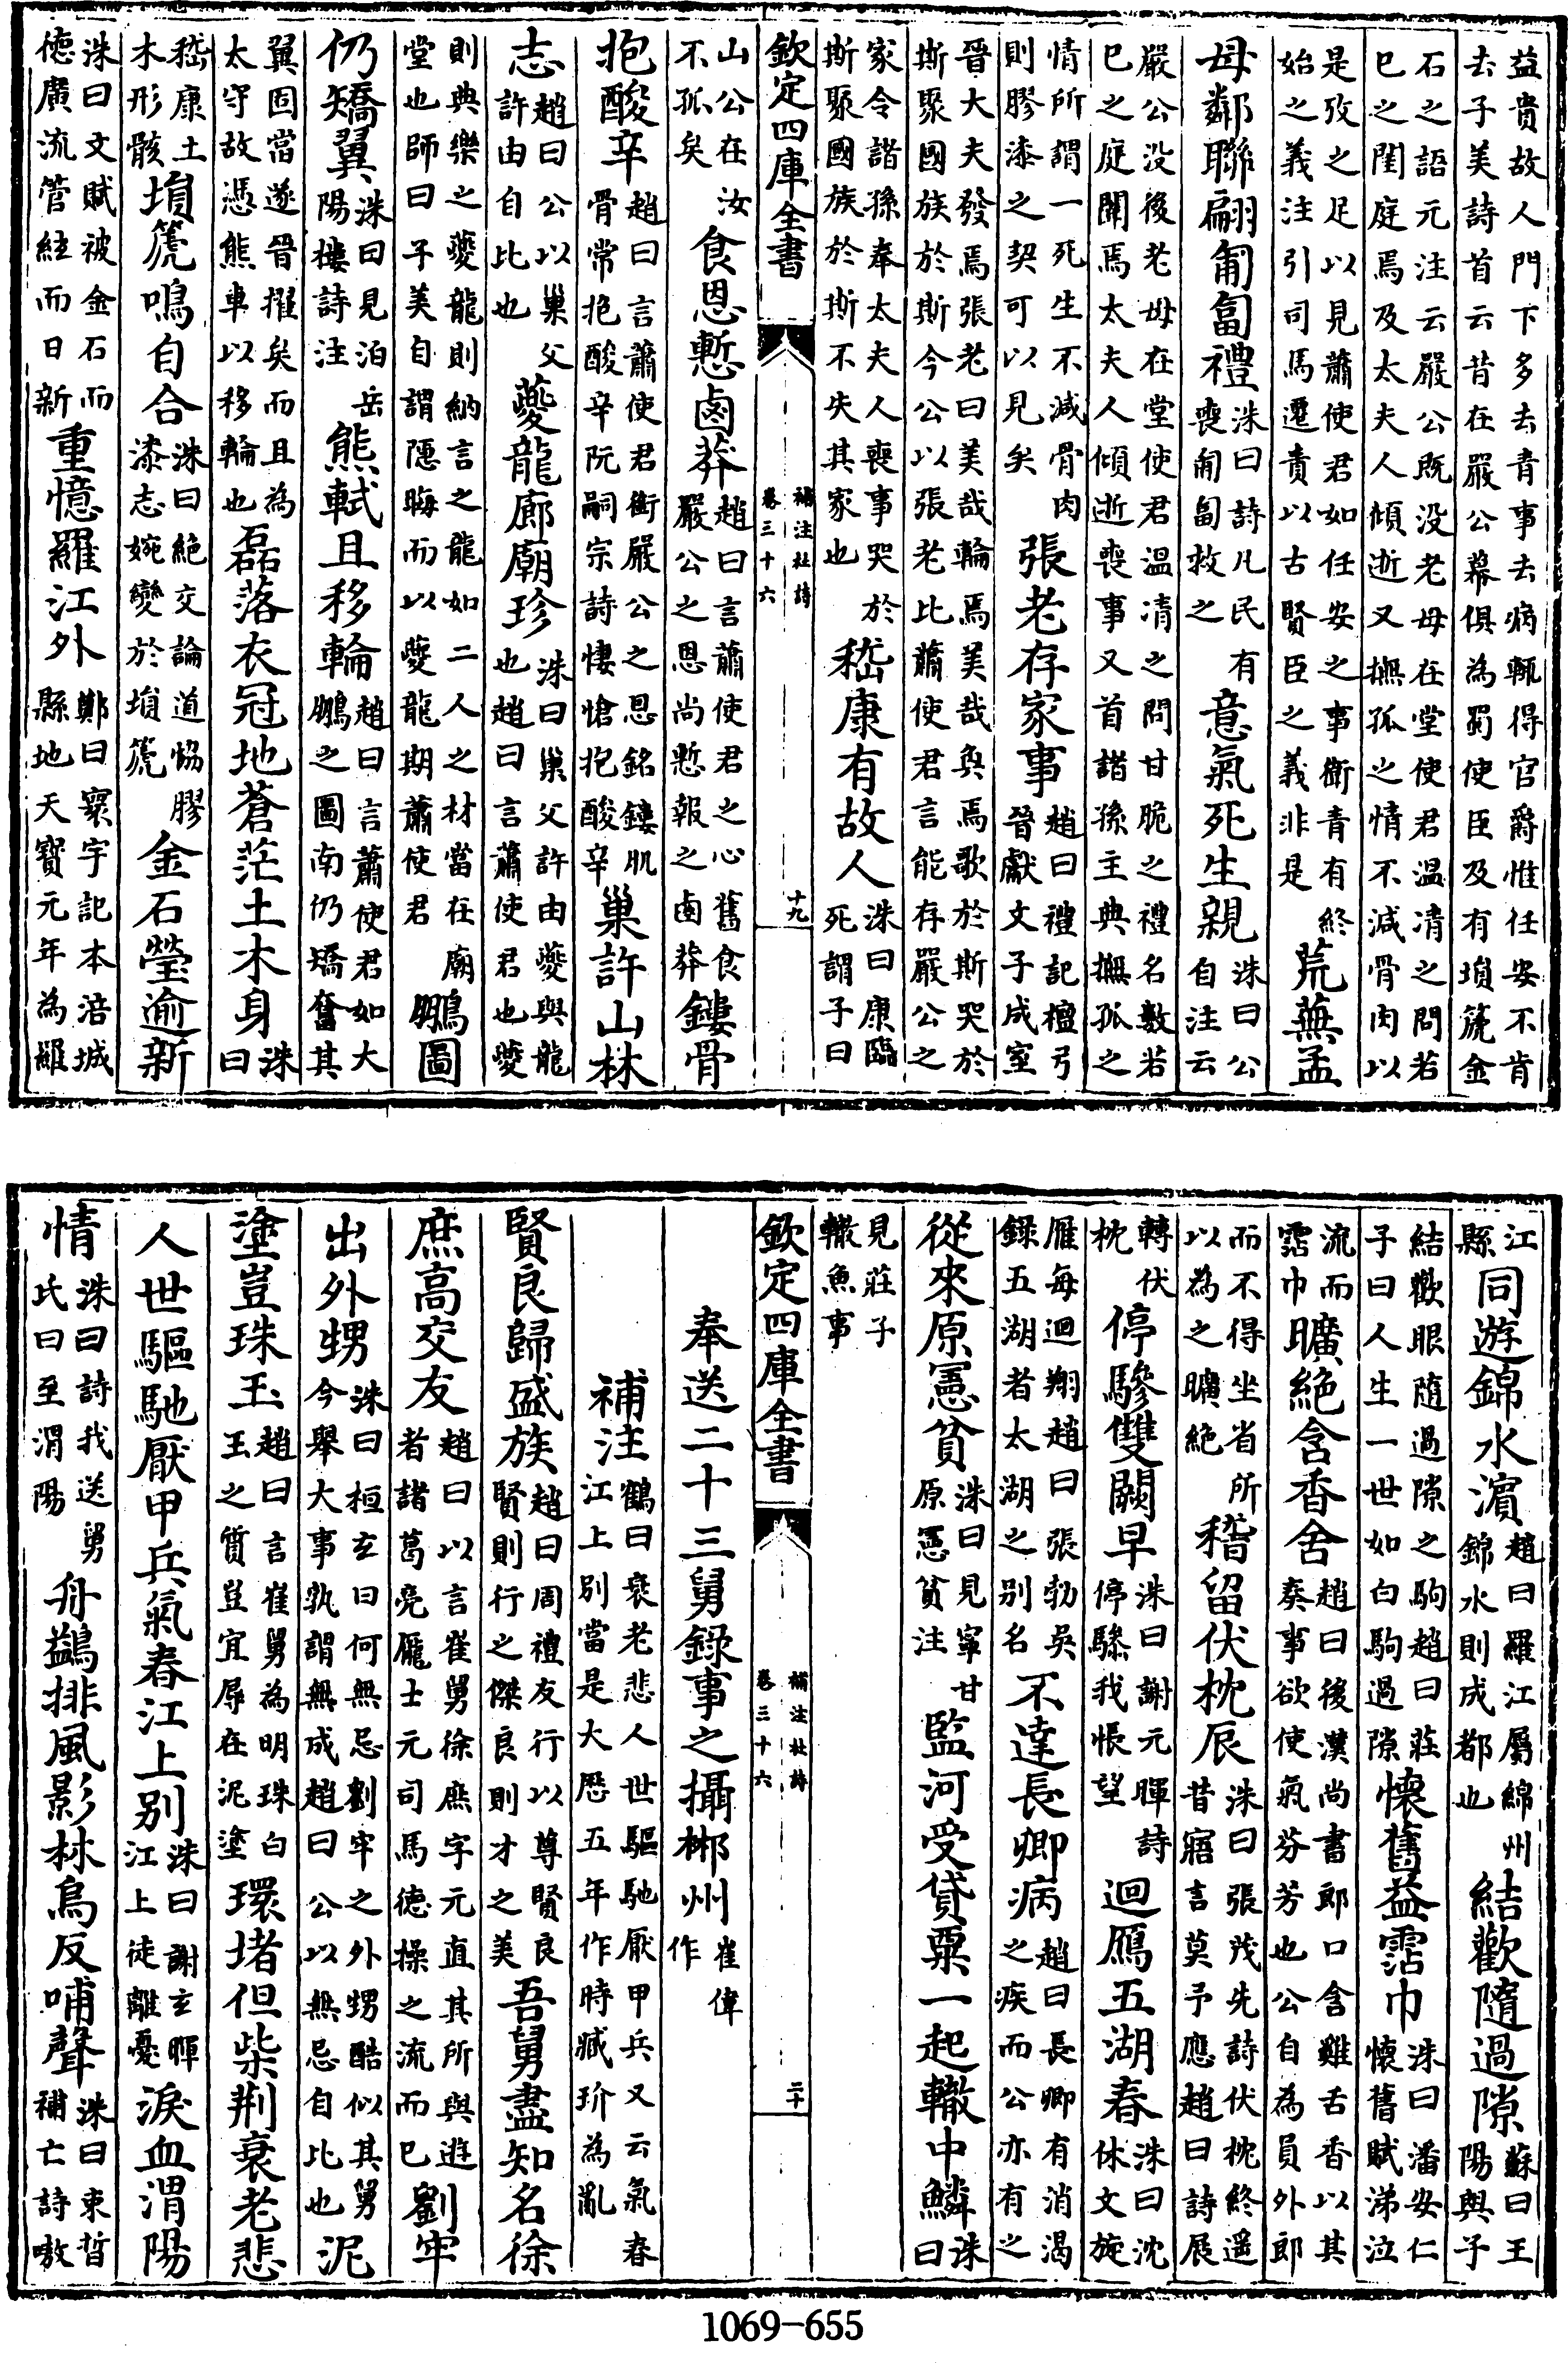 益貴故人門下多去青事去病輒得官爵惟任安不肯
去子美詩首云昔在嚴公幕俱為蜀使臣及有塤箎金
石之語元注云嚴公既没老母在堂使君温凊之問若
巳之閨庭焉及太夫人傾逝又撫孤之情不減骨肉以
是攷之足以見蕭使君如任安之事衛青有終
始之義注引司馬遷責以古賢臣之義非是
荒蕪孟
母鄰聯翩匍匐禮
洙曰詩凡民有
喪匍匐救之
意氣死生親
洙曰公
自注云
嚴公没後老母在堂使君温凊之問甘脆之禮名數若
巳之庭闈焉太夫人傾逝喪事又首諧孫主典撫孤之
情所謂一死生不減骨肉
則膠漆之契可以見矣
張老存家事
趙曰禮記檀弓
晉獻文子成室
晉大夫發焉張老曰美哉輪焉美哉奐焉歌於斯哭於
斯聚國族於斯今公以張老比蕭使君言能存嚴公之
家令諧孫奉太夫人喪事哭於
斯聚國族於斯不失其家也
嵇康有故人
洙曰康臨
死謂子曰
欽定四庫全書
補注杜詩
卷三十六
十九
山公在汝
不孤矣
食恩慙鹵莽
趙曰言蕭使君之心舊食
嚴公之恩尚慙報之鹵莽
鏤骨
抱酸辛
趙曰言蕭使君銜嚴公之恩銘鏤肌
骨常抱酸辛阮嗣宗詩悽愴抱酸辛
巢許山林
志
趙曰公以巢父
許由自比也
夔龍廊廟珍
洙曰巢父許由夔與龍
也趙曰言蕭使君也夔
則典樂之夔龍則納言之龍如二人之材當在廟
堂也師曰子美自謂隱晦而以夔龍期蕭使君
鵬圖
仍矯翼
洙曰見泊岳
陽樓詩注
熊軾且移輪
趙曰言蕭使君如大
鵬之圖南仍矯奮其
翼固當遂晉擢矣而且為
太守故憑熊車以移輪也
磊落衣冠地蒼茫土木身
洙
曰
嵇康土
木形骸
塤箎鳴自合
洙曰絶交論道恊膠
漆志婉孌於塤箎
金石瑩逾新
洙曰文賦被金石而
德廣流管絃而日新
重憶羅江外
鄭曰寰宇記本涪城
縣地天寶元年為羅
江
縣
同遊錦水濱
趙曰羅江屬綿州
錦水則成都也
結歡隨過隙
蘇曰王
陽與子
結歡眼隨過隙之駒趙曰莊
子曰人生一世如白駒過隙
懷舊益霑巾
洙曰潘安仁
懷舊賦涕泣
流而
霑巾
曠絶含香舍
趙曰後漢尚書郎口含雞舌香以其
奏事欲使氣芬芳也公自為員外郎
而不得坐省所
以為之曠絶
稽留伏枕辰
洙曰張茂先詩伏枕終遥
昔寤言莫予應趙曰詩展
轉伏
枕
停驂雙闕早
洙曰謝元暉詩
停驂我悵望
迴鴈五湖春
洙曰沈
休文旋
雁每迴翔趙曰張勃吳
録五湖者太湖之别名
不達長卿病
趙曰長卿有消渴
之疾而公亦有之
從來原憲貧
洙曰見寧甘
原憲貧注
監河受貸粟一起轍中鱗
洙
曰
見莊子
轍魚事
欽定四庫全書
補注杜詩
卷三十六
二十
奉送二十三舅録事之攝郴州
崔偉
作
補注
鶴曰衰老悲人世驅馳厭甲兵又云氣春
江上别當是大厯五年作時臧玠為亂
賢良歸盛族
趙曰周禮友行以尊賢良
賢則行之傑良則才之美
吾舅盡知名徐
庶高交友
趙曰以言崔舅徐庶字元直其所與逰
者諸葛亮龐士元司馬德操之流而巳
劉牢
出外甥
洙曰桓玄曰何無忌劉牢之外甥酷似其舅
今舉大事孰謂無成趙曰公以無忌自比也
泥
塗豈珠玉
趙曰言崔舅為明珠白
玉之質豈宜辱在泥塗
環堵但柴荆衰老悲
人世驅馳厭甲兵氣春江上别
洙曰謝玄暉
江上徒離憂
淚血渭陽
情
洙曰詩我送舅
氏曰至渭陽
舟鷁排風影林烏反哺聲
洙曰束晳
補亡詩嗷
1069-655